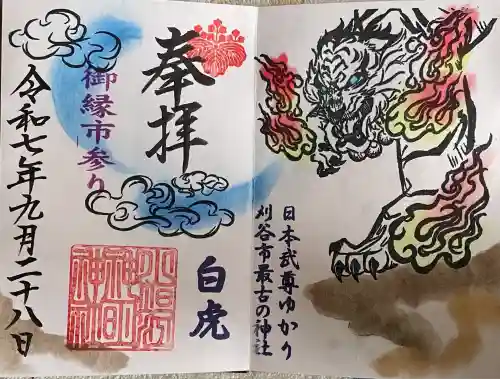 日本武尊ゆかり
刈谷市最古の神社
奉拝
白虎
御縁市参り
令和七年九月二十八日